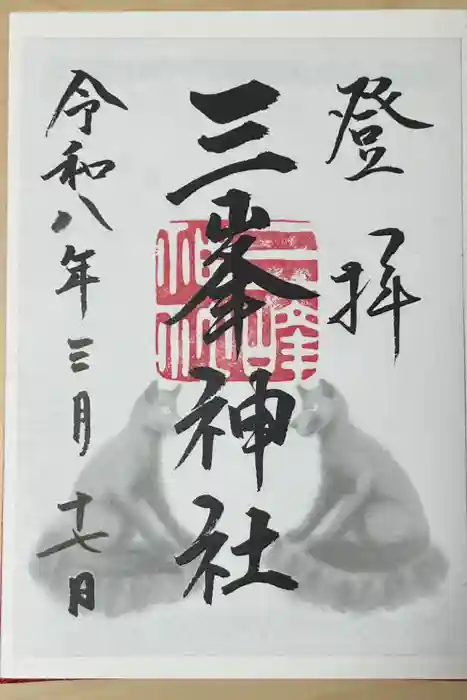 登拝
三峯神社
三峯神社
令和八年三月十七日